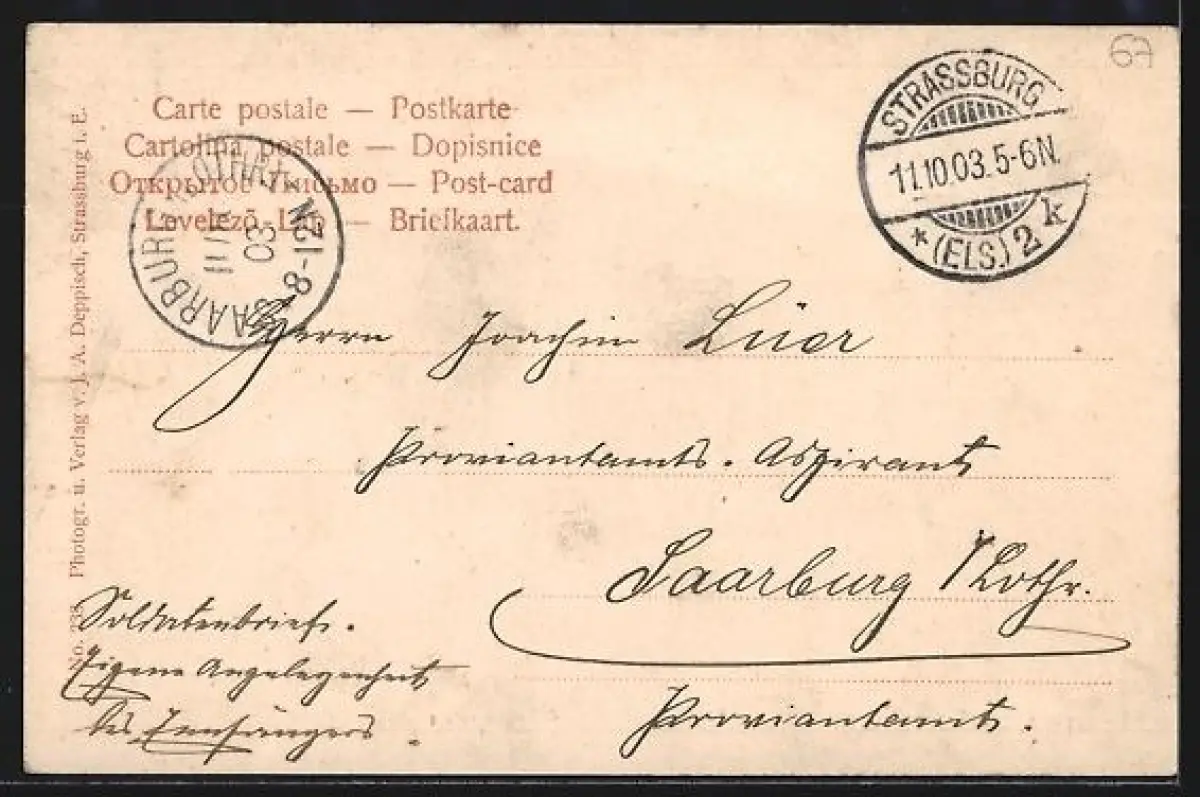 63
Carte postale — Postkarte
Cartolina postale — Dopisnice
Открытое Письмо — Post-card
Levelező-Lap — Briefkaart.
STRASSBURG
11.10.03. 5-6N.
* (ELS.) 2 k
SAARBURG LOTHR.
11/10
03
8-12N
Photogr. u. Verlag v. J. A. Deppisch, Strassburg i. E.
No. 233
Herrn Joachim Lüer
Proviantamts-Aspirant
Saarburg /Lothr.
Proviantamt.
Soldatenbrief.
Eigene Angelegenheit
des Empfängers.